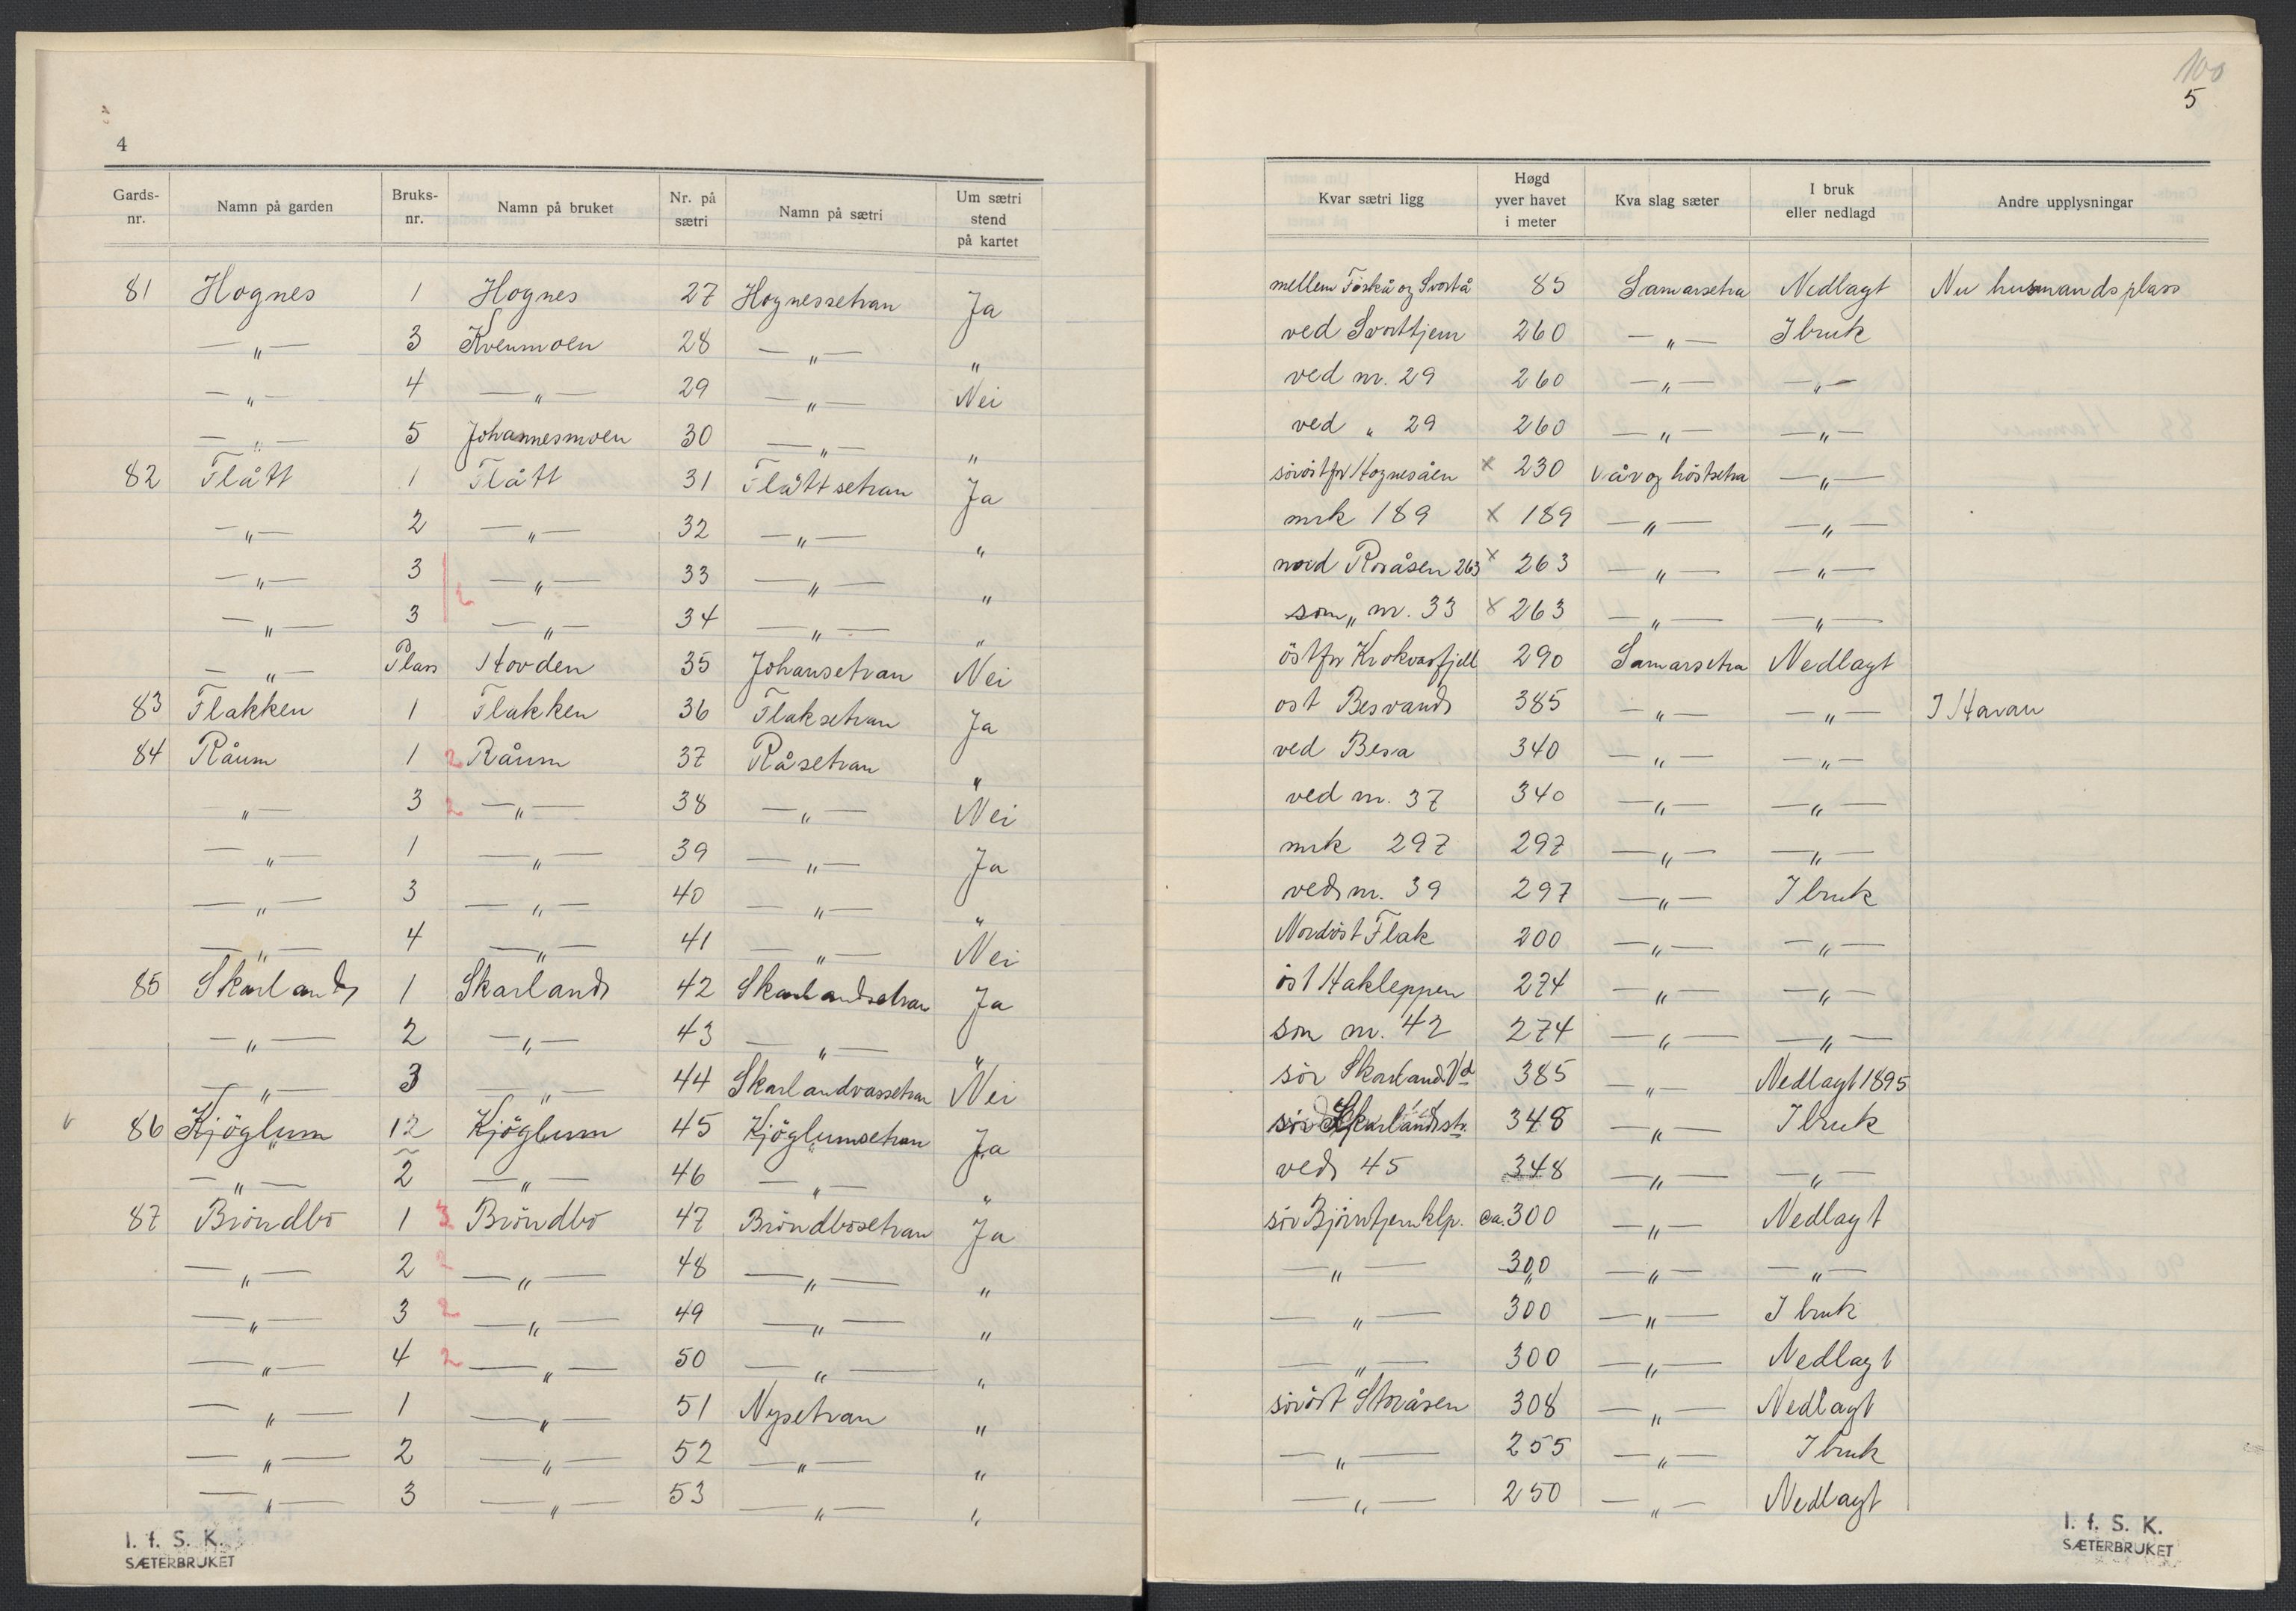 4
Gards-nr. Namn på garden Bruks-nr. Namn på bruket Nr. på sætri Namn på sætri Um sætri stend på kartet
81 Hognes 1 Hognes 27 Hognessetran Ja
—„— 3 Kvenmoen 28 —„— „
—„— 4 —„— 29 —„— Nei
—„— 5 Johannesmoen 30 —„— „
82 Flått 1 Flått 31 Flåttsetran Ja
—„— 2 —„— 32 —„— „
—„— 3 —„— 33 —„— „
2
—„— 3 —„— 34 —„— „
—„— Plass Hovden 35 Johansetran Nei
83 Flakken 1 Flakken 36 Flaksetran Ja
84 Råum 1 2 Råum 37 Råsetran „
„— 3 2 —„— 38 —„— Nei
—„— 1 —„— 39 —„— Ja
—„— 3 —„— 40 —„— „
—„— 4 —„— 41 —„— Nei
85 Skarland 1 Skarland 42 Skarlandsetran Ja
—„— 2 —„— 43 —„— „
—„— 3 —„— 44 Skarlandvassetran Nei
86 Kjöglum 12 Kjöglum 45 Kjöglumsetran Ja
—„— 2 —„— 46 —„— „
87 Bröndbo 1 3 Bröndbo 47 Bröndbosetran Ja
—„— 2 2 —„— 48 —„— „
—„— 3 2 —„— 49 —„— „
—„— 4 2 —„— 50 —„— „
—„— 1 —„— 51 Nysetran „
—„— 2 —„— 52 —„— „
—„— 3 —„— 53 —„— „
I. f. S. K.
SÆTERBRUKET
100
5
Kvar sætri ligg Høgd yver havet i meter Kva slag sæter I bruk eller nedlagd Andre upplysningar
mellem Foskå og Svartå 85 Samarsetra Nedlagt Nu husmandsplass
ved Svarttjern 260 —„— I bruk
ved nr. 29 260 —„— —„—
ved „ 29 260 —„— —„—
söröst for Hognesåen x 230 vår og höstsetra —„—
mrk 189 x 189 —„— —„—
nord Roråsen 263 x 263 —„— —„—
som „ nr. 33 x 263 —„— —„—
öst for Krokvasfjell 290 Samarsetra Nedlagt
ost Besvand 385 —„— —„— I Haran
ved Besa 340 —„— —„—
ved nr. 37 340 —„— —„—
mrk 297 297 —„— —„—
ved nr. 39 297 —„— I bruk
Nordöst Flak 200 —„— —„—
öst Hakleppen 274 —„— —„—
som nr. 42 274 —„— —„—
sör Skarland Vd 385 —„— Nedlagt 1895
sör Skarlandstr. 348 —„— I bruk
ved 45 348 —„— —„—
sör Björntjernklp. ca. 300 —„— Nedlagt
—„— 300 —„— —„—
—„— 300 —„— I bruk
—„— 300 —„— Nedlagt
söröst Storåsen 308 —„— Nedlagt
—„— 255 —„— I bruk
—„— 250 —„— Nedlagt
I. f. S. K.
SÆTERBRUKET